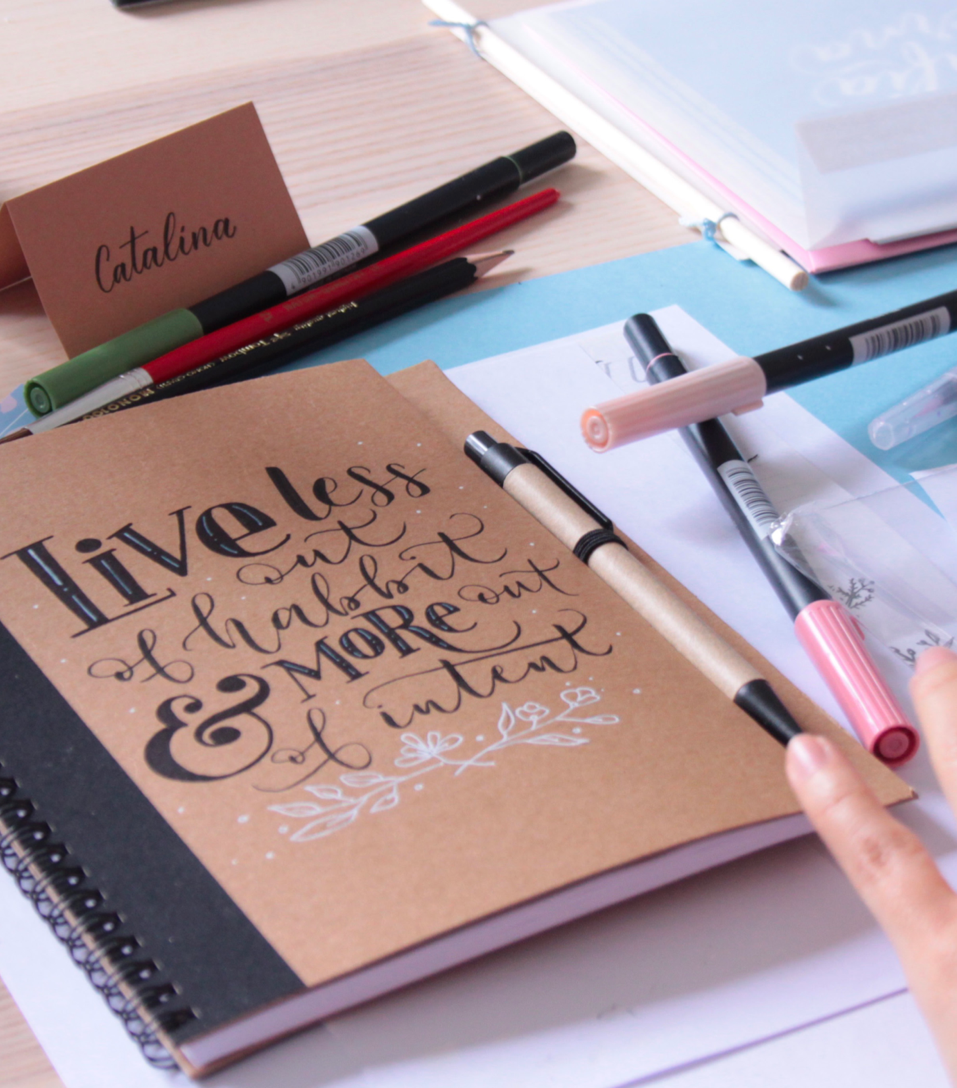 Catalina
MONO100
Live less
out
of habbit
& MORe out
of intent